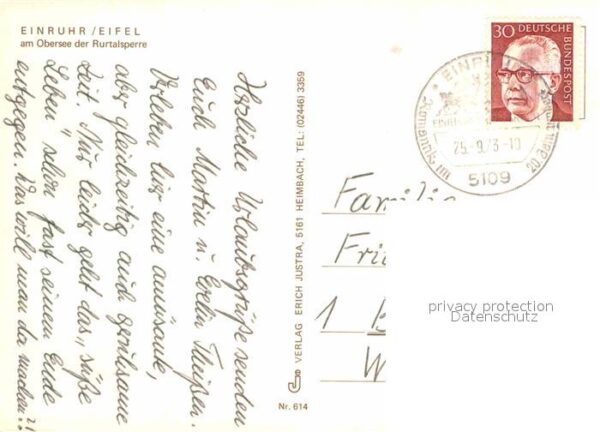 EINRUHR/EIFEL
am Obersee der Rurtalsperre
Herzliche Urlaubsgrüße senden
Euch Martin u. Evelin Theißen.
Verleben hier eine amüsante,
aber gleichzeitig auch geruhsame
Zeit. Nur leider geht das „süße
Leben" schon fast seinem Ende
entgegen. Was will man da machen?!
VERLAG ERICH JUSTRA, 5161 HEIMBACH, TEL: (02446) 3359
Nr. 614
30
DEUTSCHE
BUNDESPOST
EINRUHR
25.-9.73-10
5109
Familie
1
W
privacy protection
Datenschutz